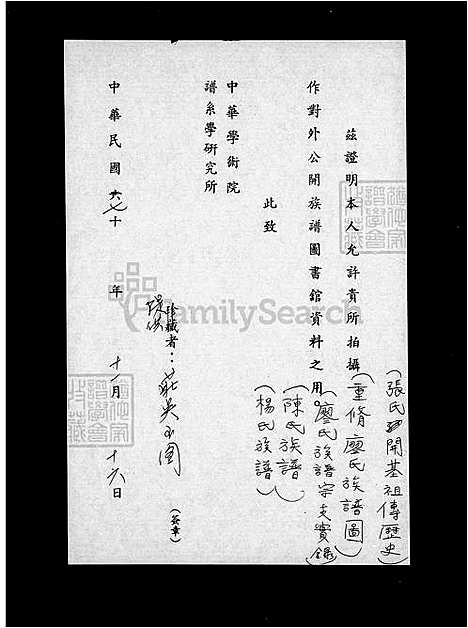 茲證明本人允許貴所拍攝(重脩廖氏族譜圖)
(張氏開基祖傳歷史)
(廖氏族譜宗支實錄)
(陳氏族譜)
(楊氏族譜)
作對外公開族譜圖書館資料之用。
此致
中華學術院
譜系學研究所
珍藏者：
提供
(簽章)
中華民國六七十年十一月十六日
FamilySearch